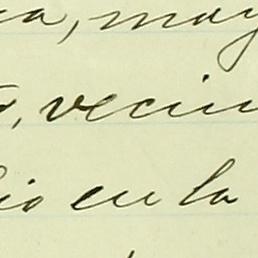 a, may
, vecin
io en la